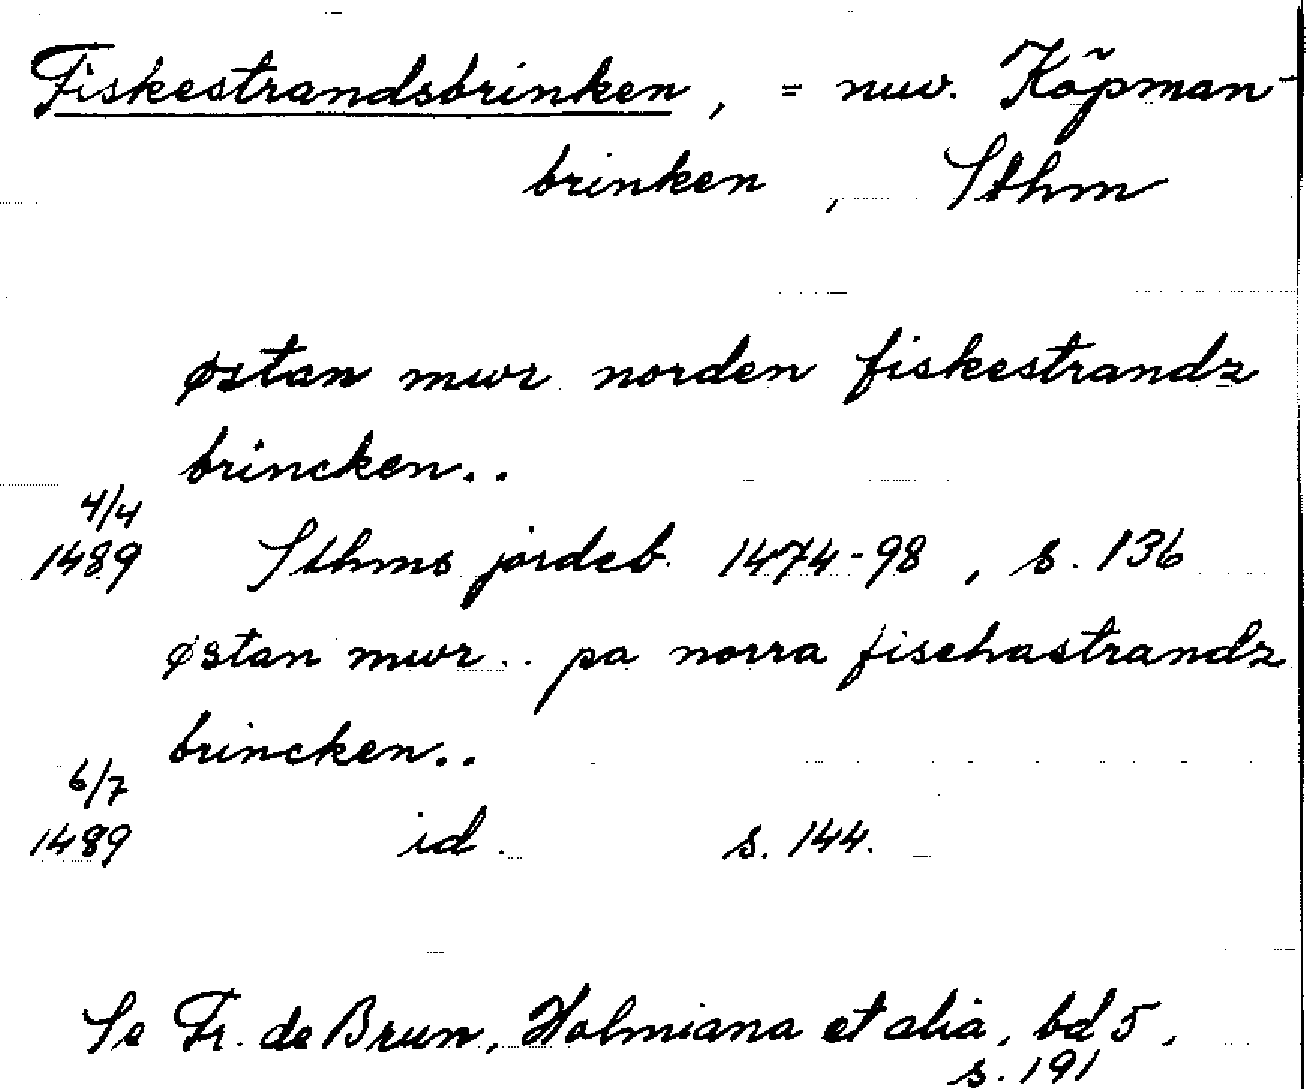 Fiskestrandsbrinken, = nuv. Köpman-
brinken, Sthm
østan mwr norden fiskestrandz
brincken..
4/4
1489 Sthms jordeb. 1474-98, s. 136
østan mwr .. pa norra fischastrandz
brincken..
6/7
1489 id. s. 144.
Se Fr. de Brun, Holmiana et alia, bd 5,
s. 191